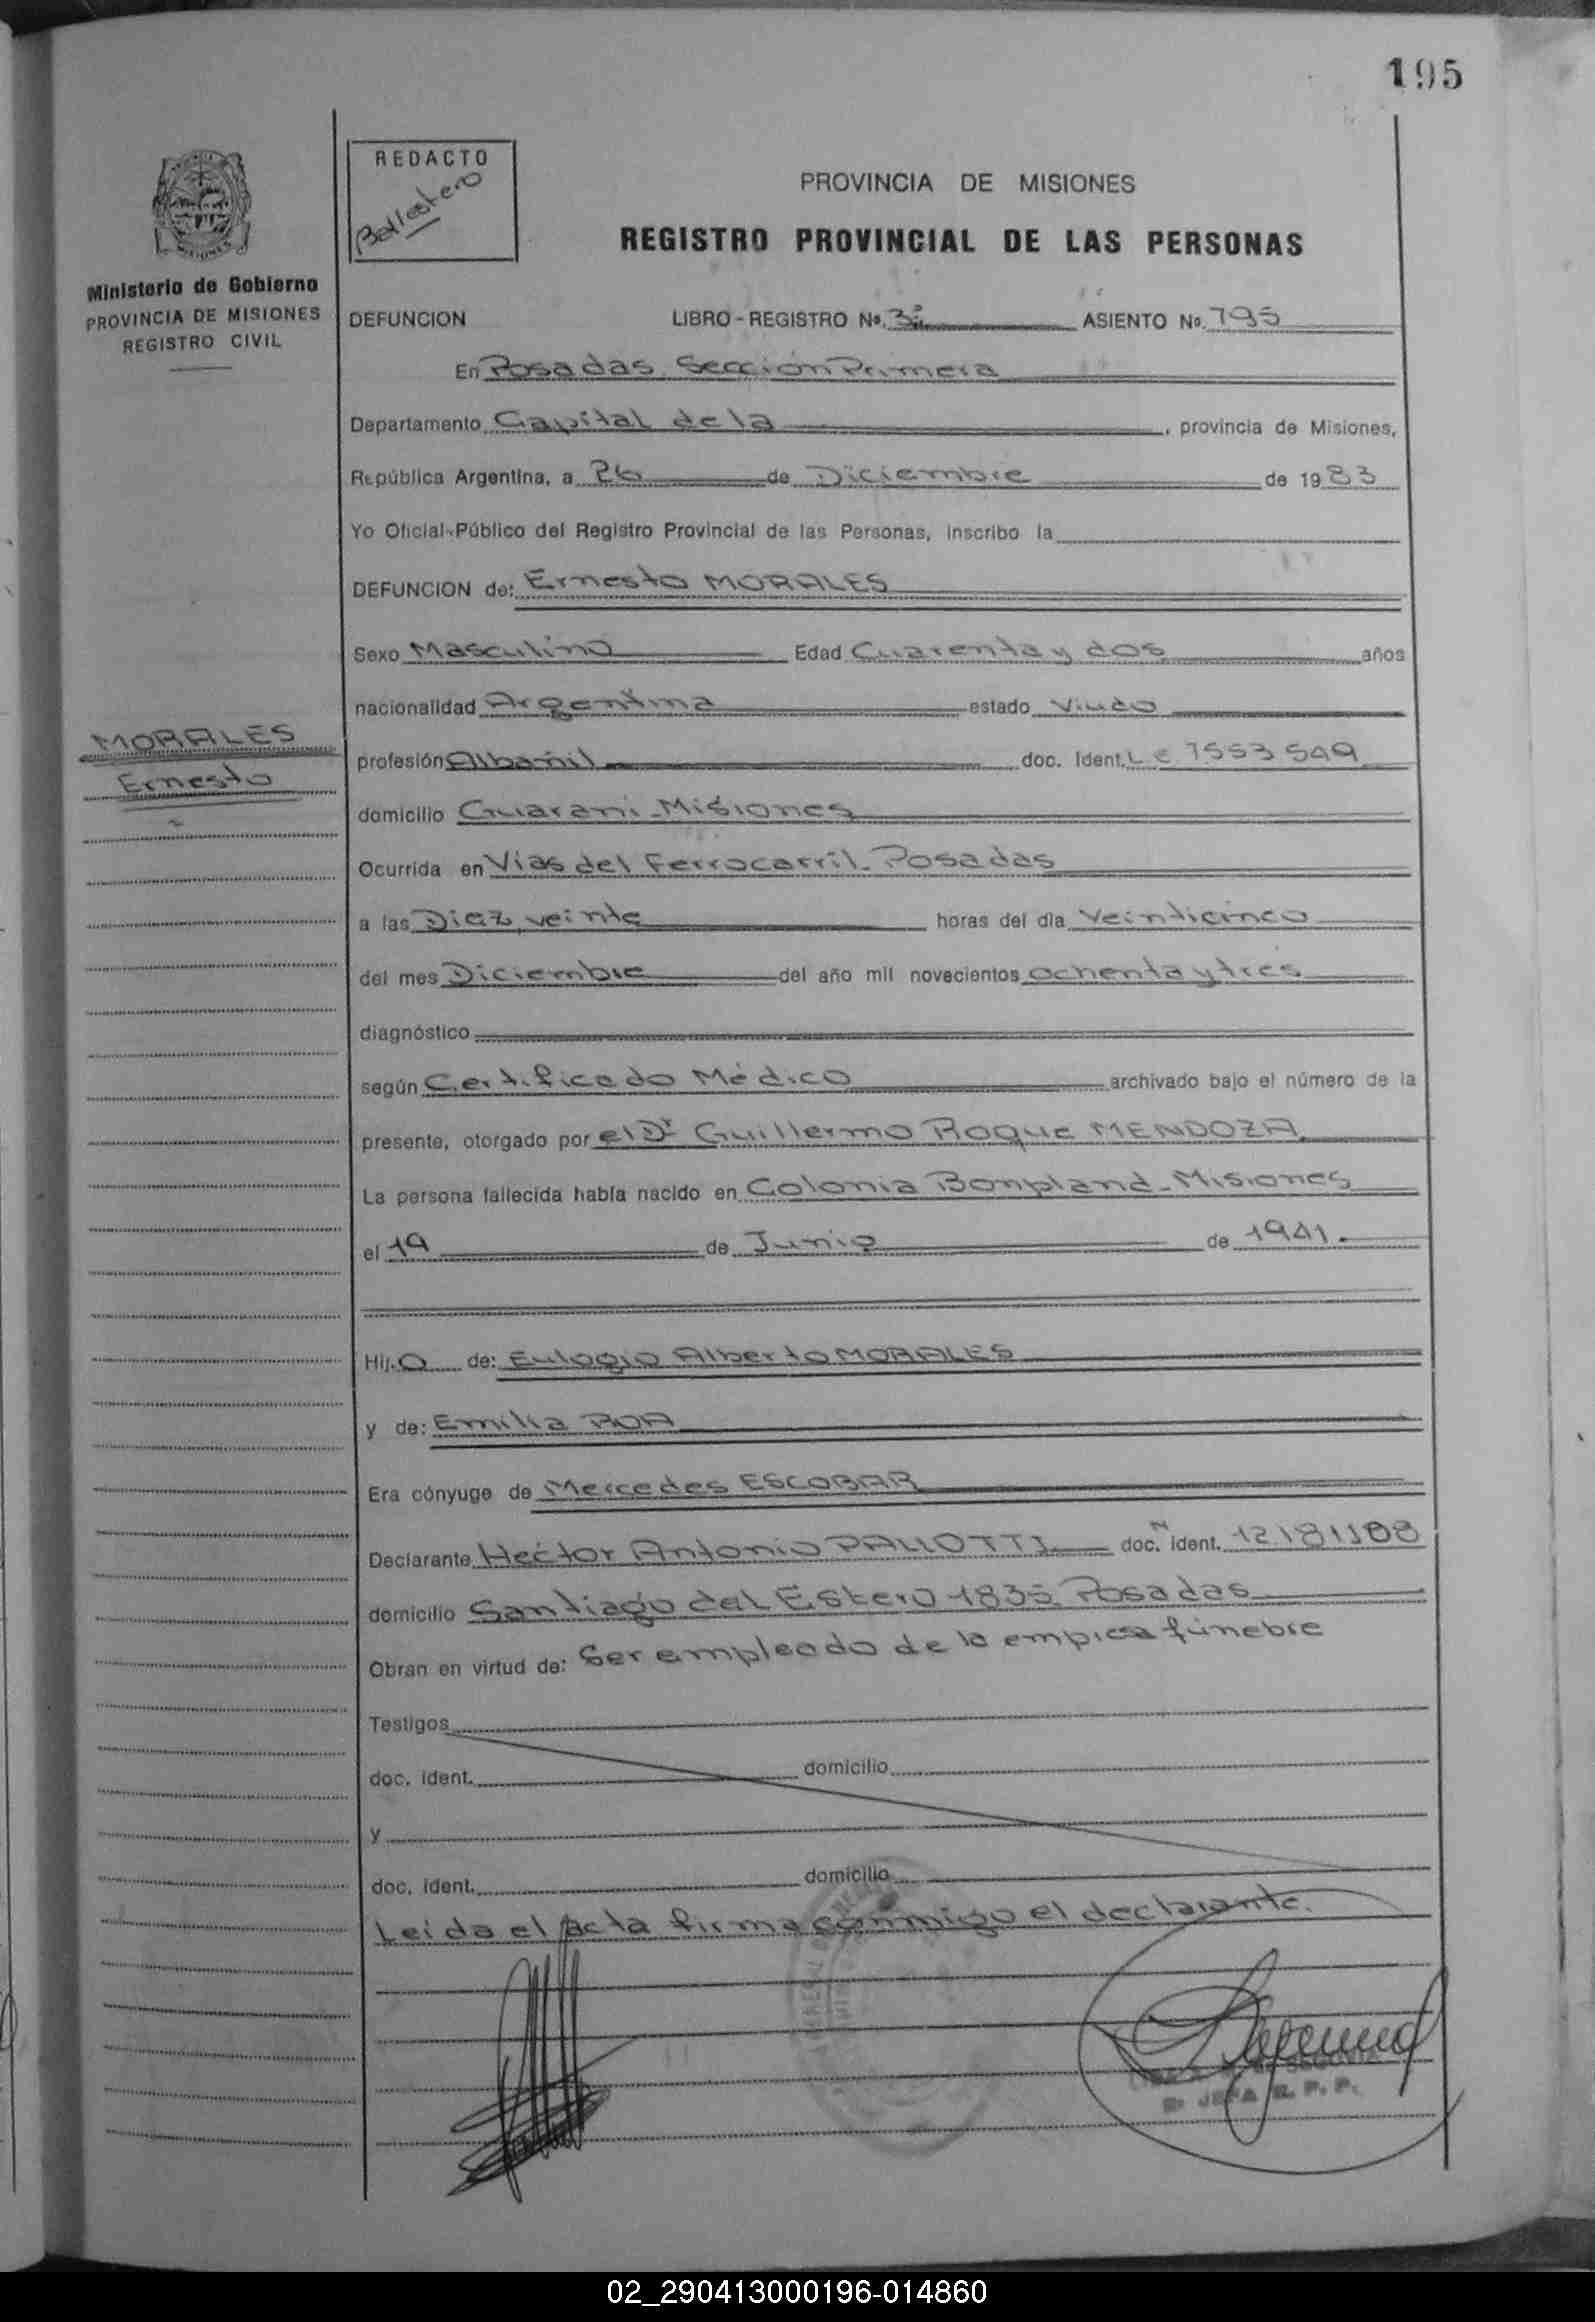 195
REDACTO
Ballestero
PROVINCIA DE MISIONES
REGISTRO PROVINCIAL DE LAS PERSONAS
Ministerio de Gobierno
PROVINCIA DE MISIONES
REGISTRO CIVIL
DEFUNCION LIBRO - REGISTRO Nº. 3º ASIENTO Nº. 795
En Posadas Sección Primera
Departamento Capital de la , provincia de Misiones,
República Argentina, a 26 de Diciembre de 1983
Yo Oficial Público del Registro Provincial de las Personas, inscribo la
DEFUNCION de: Ernesto MORALES
Sexo Masculino Edad Cuarenta y dos años
nacionalidad Argentina estado Viudo
MORALES
Ernesto
profesión Albañil doc. Ident. L E 7553549
domicilio Guaraní - Misiones
Ocurrida en Vias del Ferrocarril - Posadas
a las Diez, veinte horas del día Veinticinco
del mes Diciembre del año mil novecientos ochenta y tres
diagnóstico
según Certificado Médico archivado bajo el número de la
presente, otorgado por el Dr Guillermo Roque MENDOZA
La persona fallecida había nacido en Colonia Bonpland - Misiones
el 19 de Junio de 1941.
Hij.o de: Eulogio Alberto MORALES
y de: Emilia ROA
Era cónyuge de Mercedes ESCOBAR
Declarante Hector Antonio PALLOTTI doc. N ident. 12181108
domicilio Santiago del Estero 1835 Posadas
Obran en virtud de: Ser empleado de la empresa fúnebre
Testigos
doc. ident. domicilio
y
doc. ident. domicilio
Leida el acta firma conmigo el declarante.
JEFA R. P. P.
02_290413000196-014860